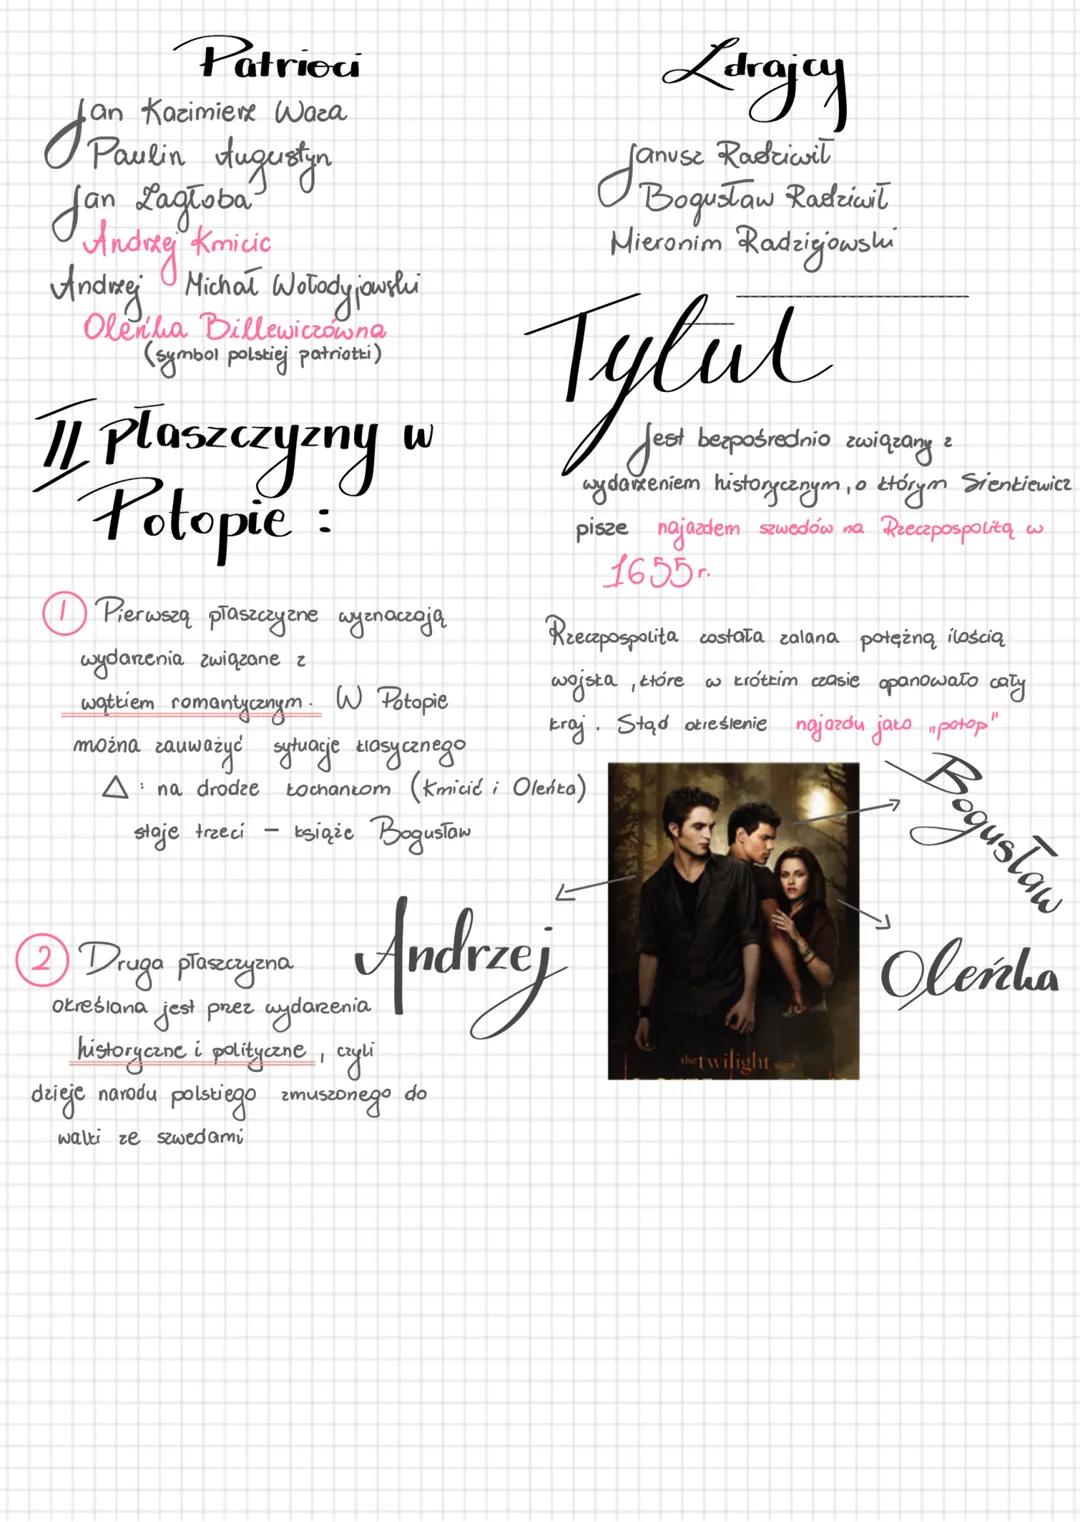 Patrioci
Jan Kazimierz Waza
Paulin Augustyn
Jan Zagłoba
Andrzej Kmicic
Andrzej Michał Wołodyjowski
Oleńka Billewiczówna
(symbol polskiej patriotki)
II płaszczyzny w
Potopie :
1 Pierwszą płaszczyzne wyznaczają
wydarzenia związane z
wątkiem romantycznym. W Potopie
można zauważyć sytuacje klasycznego
△ : na drodze kochankom (Kmicić i Oleńka)
staje trzeci – książe Bogusław
2 Druga płaszczyzna
określana jest przez wydarzenia
historyczne i polityczne, czyli
dzieje narodu polskiego zmuszonego do
walki ze szwedami
Zdrajcy
Janusz Radziwił
Bogusław Radziwił
Hieronim Radziejowski
Tytuł
Jest bezpośrednio związany z
wydarzeniem historycznym, o którym Sienkiewicz
pisze najazdem szwedów na Rzeczpospolitą w
1655r.
Rzeczpospolita została zalana potężną ilością
wojska, które w krótkim czasie opanowało cały
kraj. Stąd określenie najazdu jako „potop"
Bogusław
Andrzej
Oleńka
the twilight saga